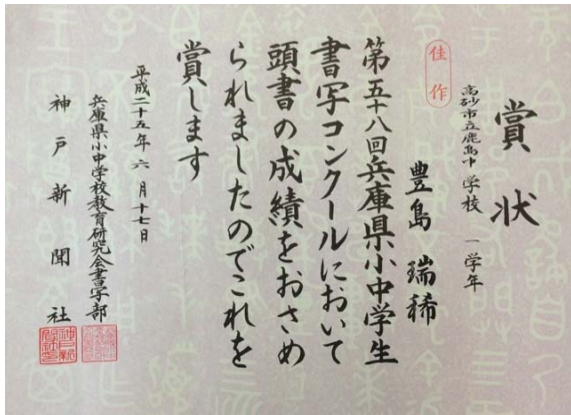 賞状
佳作
高砂市立鹿島中学校 一学年
豊島 瑞稀
第五十八回兵庫県小中学生
書写コンクールにおいて
頭書の成績をおさめ
られましたのでこれを
賞します
平成二十五年六月十七日
兵庫県小中学校教育研究会書写部
神戸新聞社